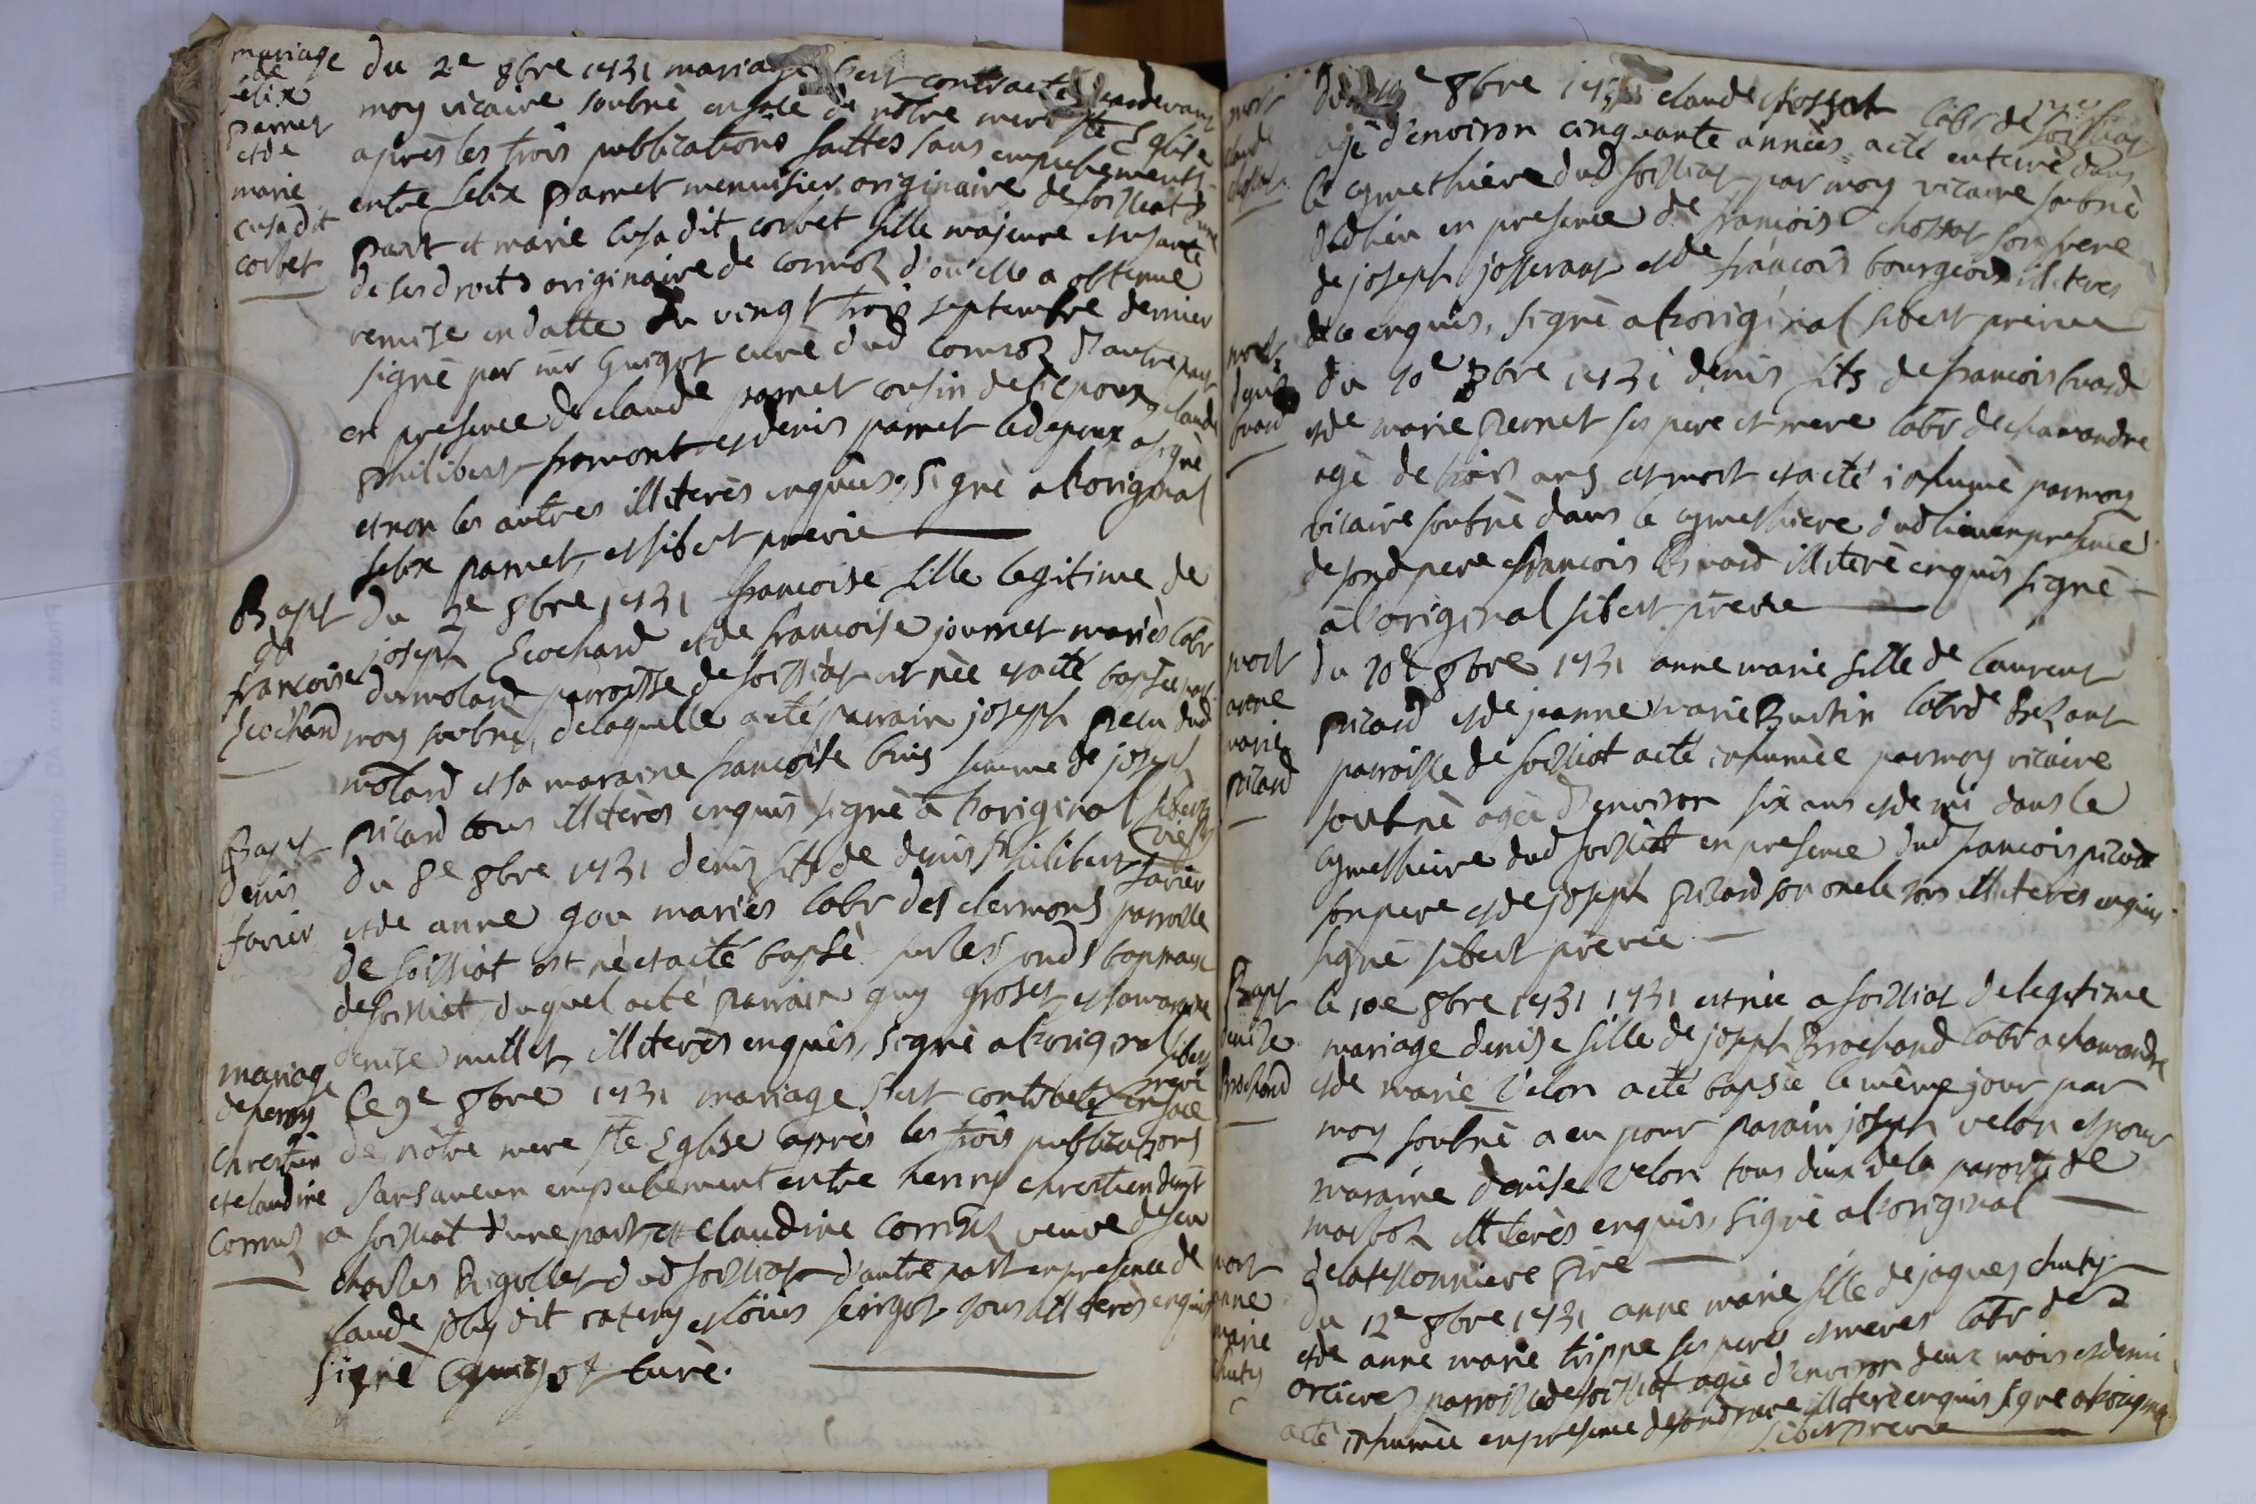 mariage
de
felix
parnet
et de
marie
cusa dit
corbet
du 2e 8bre 1731 mariage s'est contracté pardevant
moy vicaire soubné en face de nôtre mere ste Eglise
après les trois publications faittes sans empechements
entre felix parnet menuisier originaire de soissiat d'une
part et marie cusa dit corbet fille majeure et usante
de ses droits originaire de cormoz d'où elle a obtenue
remise en datte du vingt trois septembre dernier
signé par mr Guigot curé dud cormoz d'autre part
en presence de claude parnet cousin de l'epoux, claude
philibert framont et denis parnet led epoux a signé
et non les autres illiterès enquis, signé a l'original
felix parnet, et sibert prevre
Bapt
de
francoise
Ecochard
du 3e 8bre 1731 francoise fille legitime de
joseph Ecochard et de francoise journet mariés labr
du molard parroisse de soissiat est née et a eté bapsée par
moy soubné, de laquelle a eté parrain joseph pelu dud
molard et sa maraine francoise buis femme de joseph
picard tous illiterès enquis signé à l'original sibert
prevre
Bapt
denis
favier
du 8e 8bre 1731 denis fils de denis philibert favier
et de anne gou mariés labr des clermons parroisse
de soissiat est né et a eté bapsé sur les fonds baptismaux
de soissiat, duquel a eté parrain guy grosset et sa maraine
denise millet, illiterès enquis, signé a l'original sibert
prevre
mariage
de henry
chrestien
et claudine
Cormoz
Ce 9e 8bre 1731 mariage s'est contracté en face
de nôtre mere ste Eglise après les trois publications
sans aucun empechement entre henry chrestien demt
a soissiat d'une part et claudine Cormoz veuve de feu
charles Rigollet dud soissiat d'autre part en presence de
claude joly dit catery et loüis seirgot tous illiterès enquis
signé Guigot curé.
mort
claude
chossat
du 10e 8bre 1731 claude chossat labr de soissiat
agé d'environ cinquante années a eté enterré dans
le cymethiere dud soissiat par moy vicaire soubné
dud lieu en presence de francois chossat son frere
de joseph josserant et de francois bourgeois illiteres
de ce enquis, signé a l'original sibert prevre
mort
denis
buard
du 10e 8bre 1731 denis fils de francois buard
et de marie pernet ses pere et mere labr de chamandre
agé de trois ans est mort et a eté inhumé par moy
vicaire soubné dans le cymethiere dud lieu en presence
de sond pere francois Buard illiteré enquis signé
à l'original sibert prevre
mort
anne
marie
picard
du 10e 8bre 1731 anne marie fille de laurent
picard et de jeanne marie Burtin labr de Bezant
parroisse de soissiat a eté inhumée par moy vicaire
soubné agée d'environ six ans et demi dans le
cymethiere dud soissiat en presence dud francois picard
son pere et de joseph picard son oncle tous illiterès enquis
signé sibert prevre
Bapt
denise
Brochand
le 10e 8bre 1731 1731 est née a soissiat de legitime
mariage denise fille de joseph Brochand labr a chamandre
et de marie velon a eté bapsée le même jour par
moy soubné a eu pour parain joseph velon et pour
maraine denise velon tous deux de la paroisse de
marboz illiterès enquis, signé a l'original
delateyssonniere ptre
mort
anne
marie
chuty
du 12e 8bre 1731 anne marie fille de jaques chuty
et de anne marie trippe ses peres et meres labr de
orcieres parroisse de soissiat agée d'environ deux mois et demi
a eté inhumée en presence de sond pere illiteré enquis signé a l'original
sibert prevre